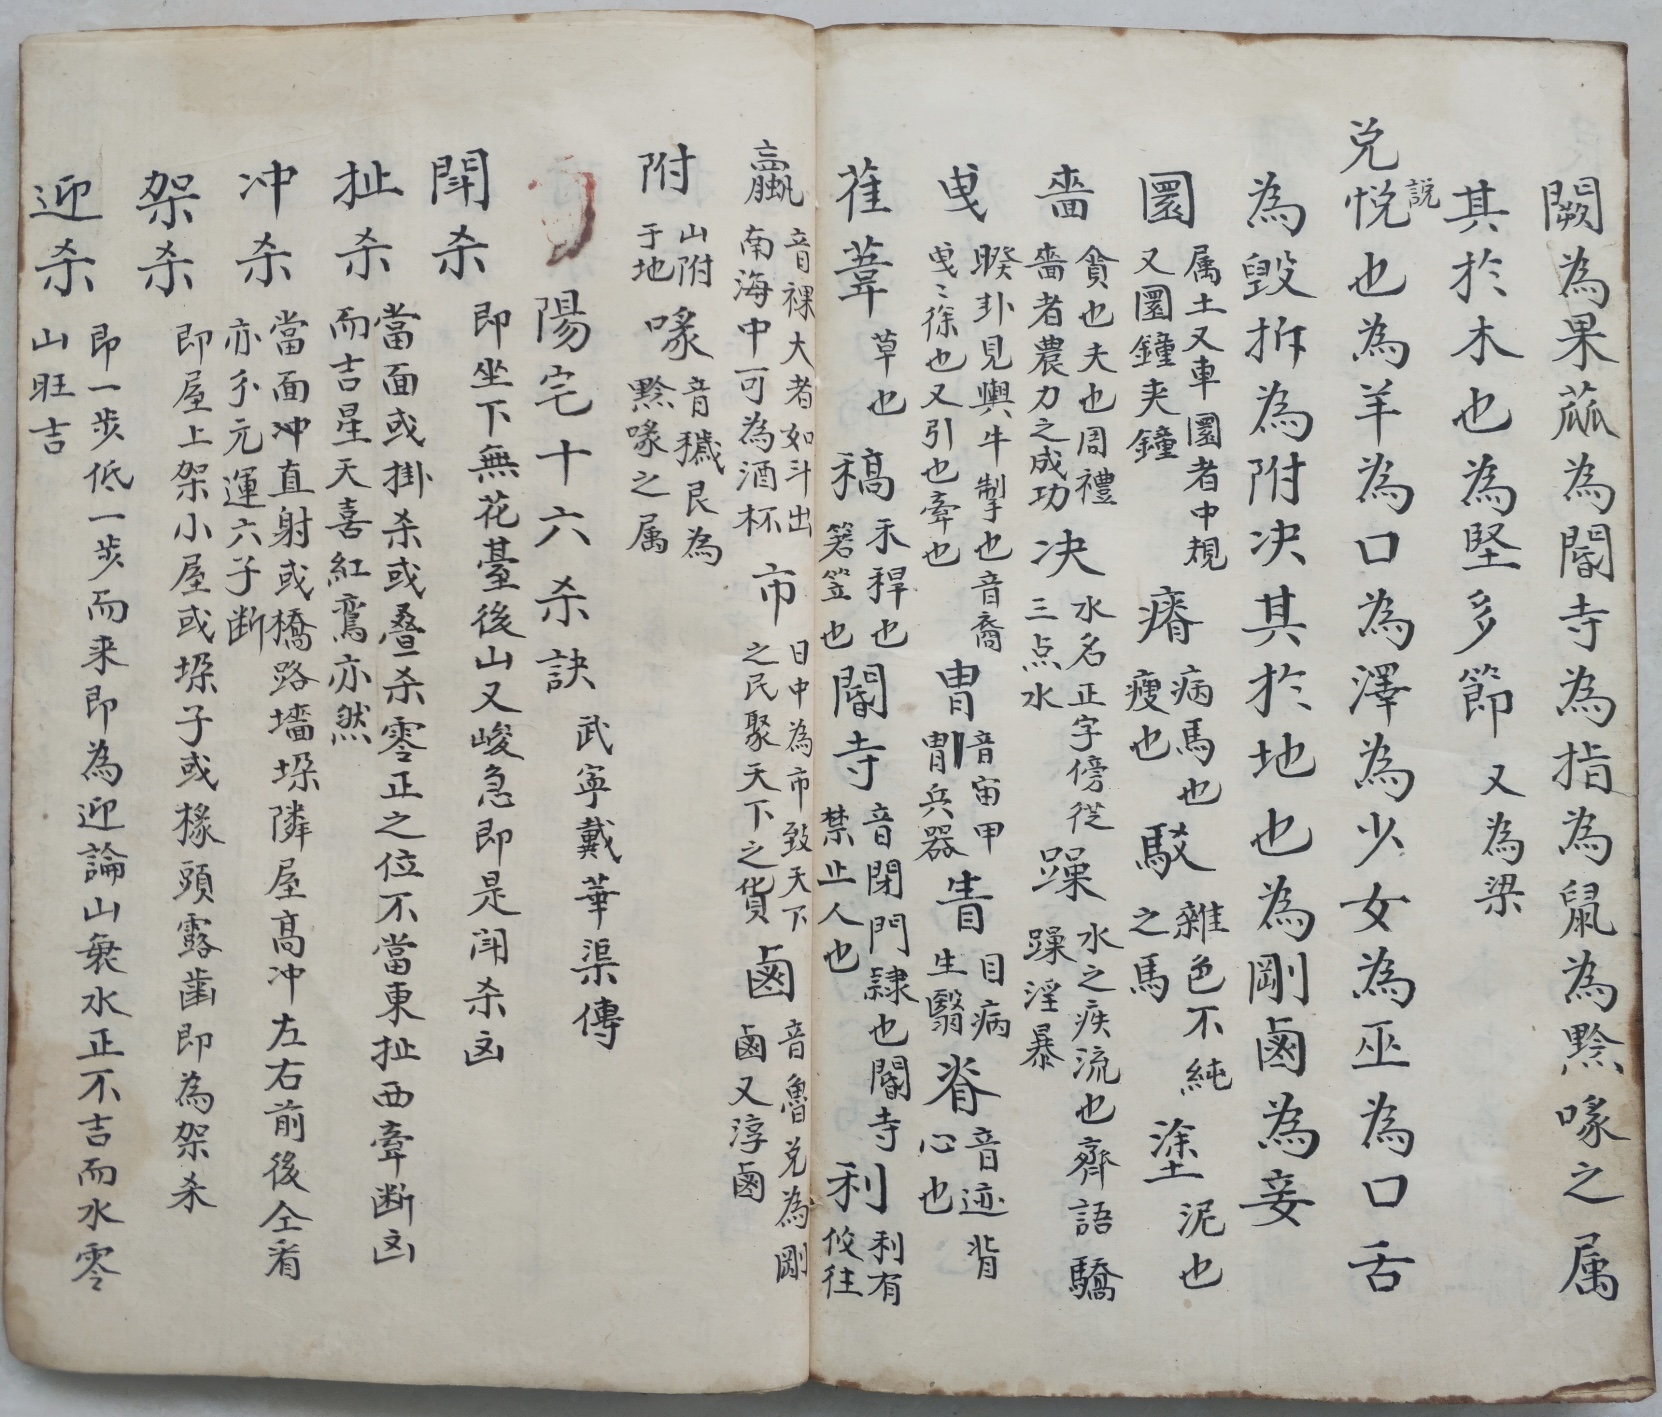 闕為果蓏為閽寺為指為鼠為黔喙之属
其於木也為堅多節又為梁
兌說悅也為羊為口為澤為少女為巫為口舌
為毀拆為附决其於地也為剛鹵為妾
圜属土又車圜者中規又圜鐘夾鐘瘠病馬也瘦也駁雜色不純之馬塗泥也
嗇貪也夫也周禮嗇者農力之成功决水名正字傍從三点水躁水之疾流也齊語驕躁淫暴
曳睽卦見輿牛掣也音裔曳〻徐也又引也牽也胄音宙甲胄兵器眚目病生翳脊音迹背心也
萑葦草也稿禾稈也箬笠也閽寺音閉門隸也閽寺禁止人也利利有攸往
蠃音裸大者如斗出南海中可為酒杯市日中為市致天下之民聚天下之貨鹵音魯兌為剛鹵又淳鹵
附山附于地喙音穢艮為黔喙之属
陽宅十六杀訣武寧戴華渠傳
閗杀即坐下無花臺後山又峻急即是閗杀凶
扯杀當面或掛杀或叠杀零正之位不當東扯西牽断凶而吉星天喜紅鸞亦然
冲杀當面冲直射或橋路墻垛隣屋高冲左右前後仝看亦分元運六子断
架杀即屋上架小屋或垛子或椽頭露齒即為架杀
迎杀即一步低一步而来即為迎論山衰水正不吉而水零山旺吉